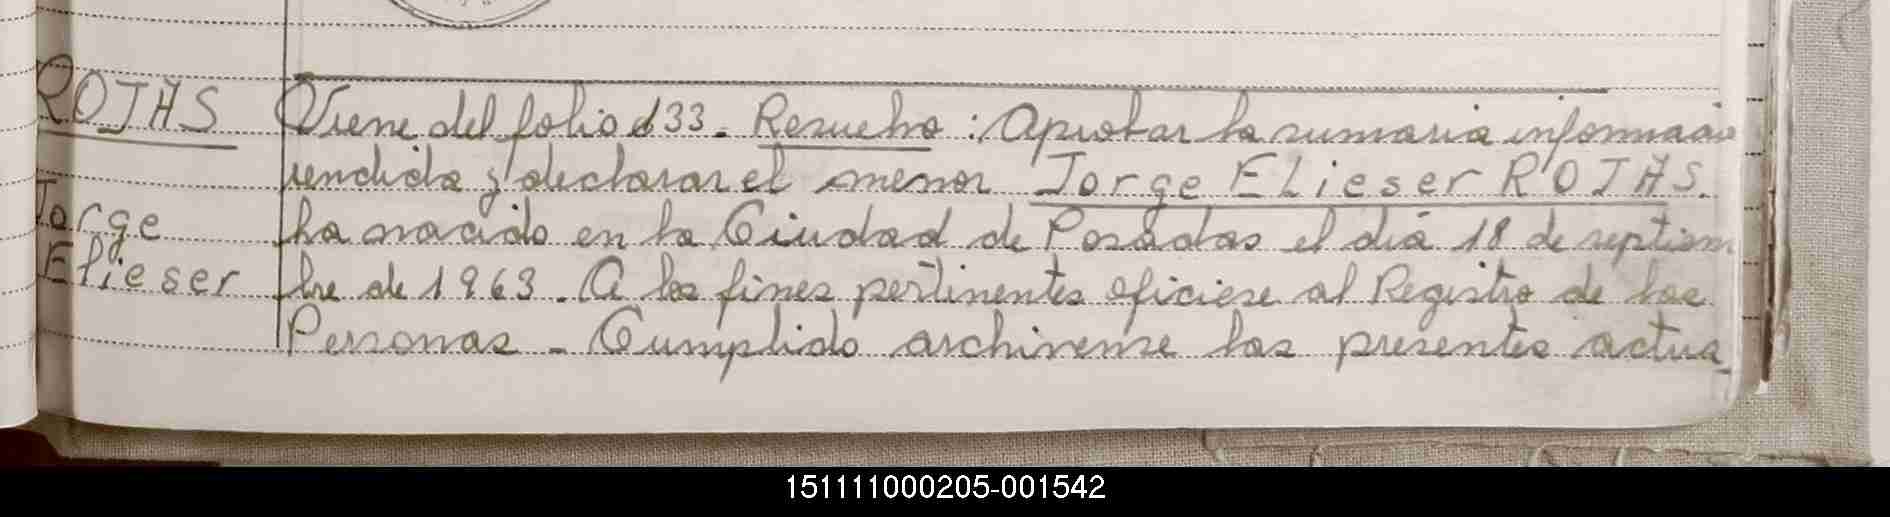 ROJAS
Jorge
Elieser
Viene del folio 133. Resuelvo: Aprobar la sumaria informacio
rendida y declarar el menor Jorge Elieser ROJAS.
ha nacido en la Ciudad de Posadas el día 18 de septiem
bre de 1963. A los fines pertinentes oficiese al Registro de las
Personas - Cumplido archivense las presentes actua
151111000205-001542